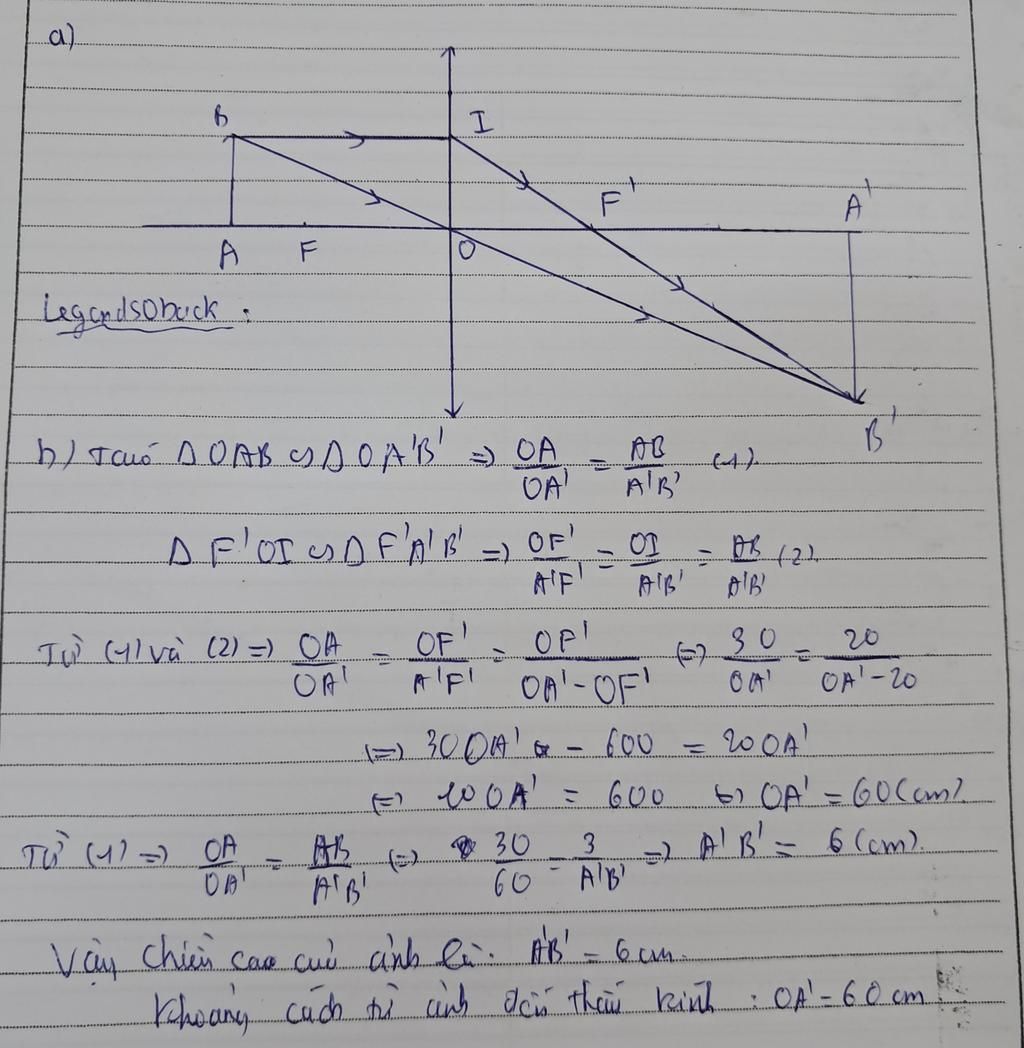 a)
B I
F' A'
A F O
LegendsOback :
B'
b) Ta có Δ OAB ∽ Δ OA'B' => OA/OA' = AB/A'B' (1).
Δ F'OI ∽ Δ F'A'B' => OF'/A'F' = OI/A'B' = AB/A'B' (2).
Từ (1) và (2) => OA/OA' = OF'/A'F' = OF'/OA'-OF' <=> 30/OA' = 20/OA'-20
<=> 30OA' - 600 = 20OA'
<=> 10OA' = 600 <=> OA' = 60 (cm).
Từ (1) => OA/OA' = AB/A'B' <=> 30/60 = 3/A'B' => A'B' = 6 (cm).
Vậy chiều cao của ảnh là: A'B' = 6 cm.
Khoảng cách từ ảnh đến thấu kính : OA' = 60 cm